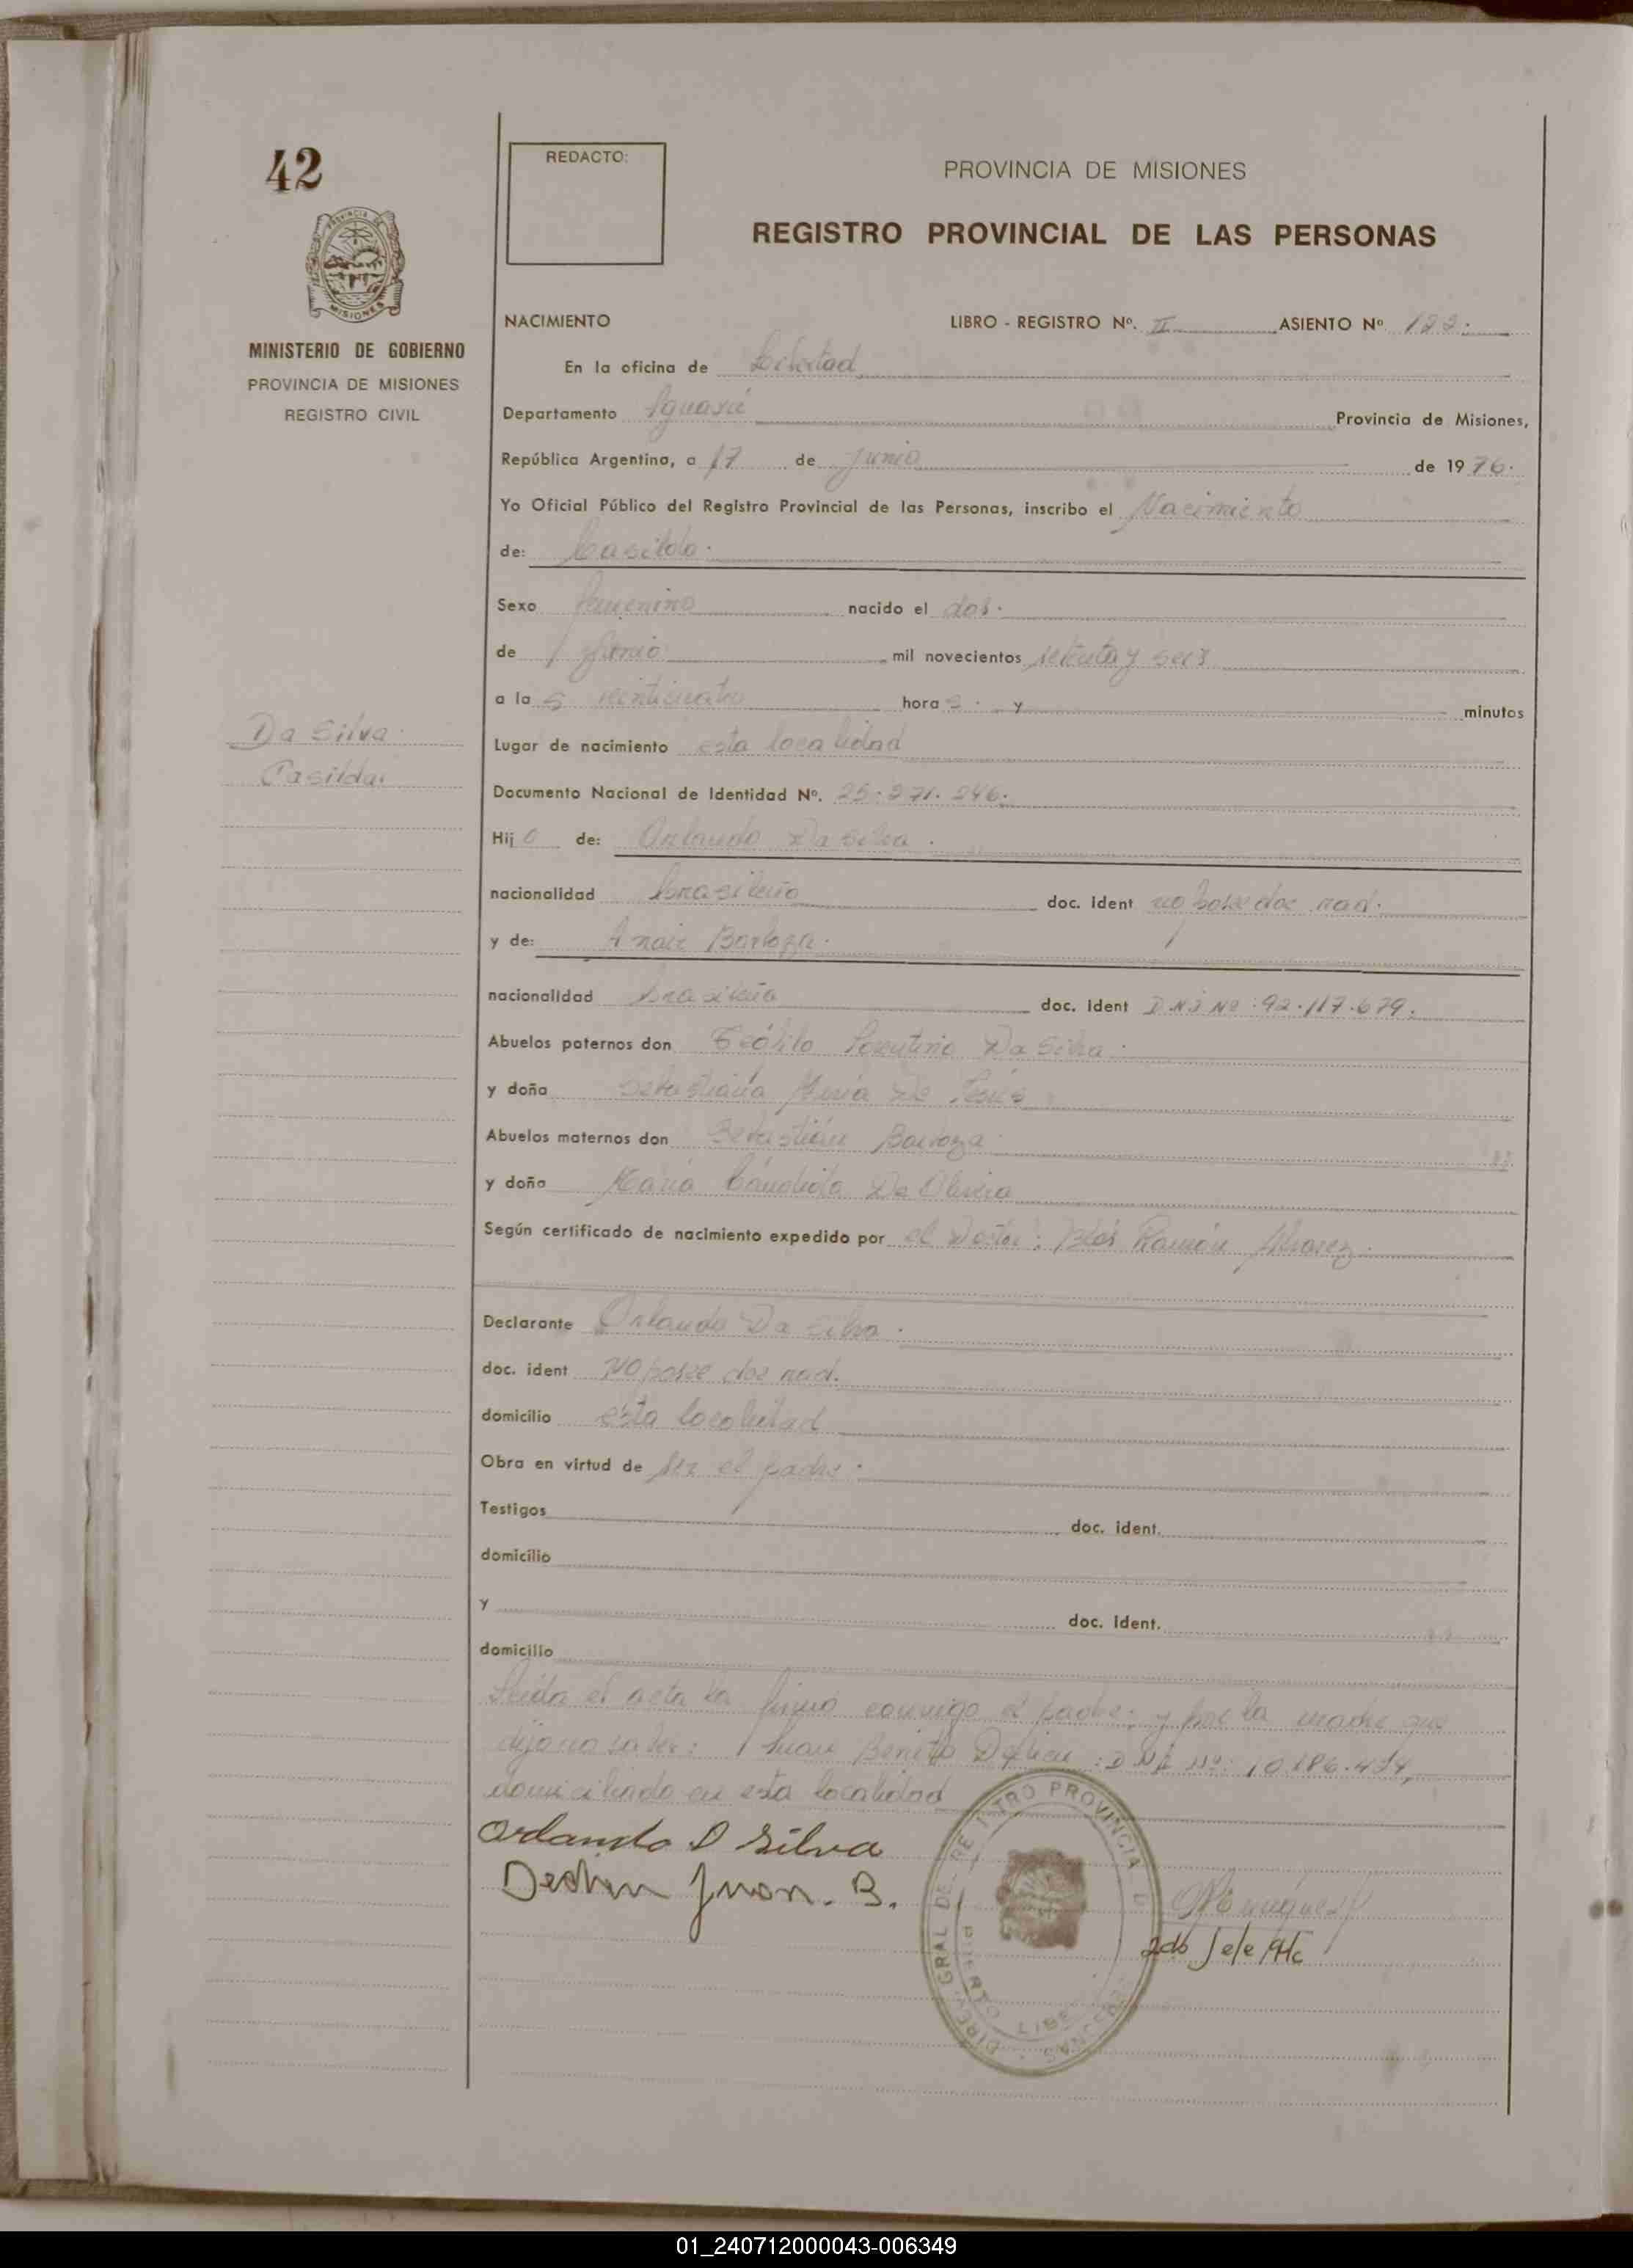 42
REDACTO:
PROVINCIA DE MISIONES
REGISTRO PROVINCIAL DE LAS PERSONAS
MISIONES
MINISTERIO DE GOBIERNO
PROVINCIA DE MISIONES
REGISTRO CIVIL
NACIMIENTO LIBRO - REGISTRO Nº. II ASIENTO Nº 122.
En la oficina de Libertad
Departamento Iguazú Provincia de Misiones,
República Argentina, a 17 de junio de 1976.
Yo Oficial Público del Registro Provincial de las Personas, inscribo el Nacimiento
de: Casilda.
Sexo Femenino nacido el dos.
de junio mil novecientos setenta y seis
a la s veinticuatro hora s. y minutos
Da Silva
Casilda.
Lugar de nacimiento esta localidad
Documento Nacional de Identidad Nº. 25.271.246.
Hij a de: Orlando Da Silva.
nacionalidad brasileña doc. ident no posee doc nad.
y de: Anair Barboza.
nacionalidad brasileña doc. ident D N I Nº: 92.117.679.
Abuelos paternos don Da Silva.
y doña Sebastiana María De
Abuelos maternos don Sebastián Barboza
y doña María Cándida De Olivera
Según certificado de nacimiento expedido por el Doctor: Blás Ramón Alvarez.
Declarante Orlando Da Silva.
doc. ident No posee doc nad.
domicilio esta localidad
Obra en virtud de ser el padre.
Testigos doc. ident.
domicilio
y doc. ident.
domicilio
Leida el acta la firmó conmigo el padre; y por la madre que
dijo no saber: Juan Benito : D N I Nº: 10.186.
domiciliado en esta localidad
Orlando D Silva
Juan. B.
2do Jefe
01_240712000043-006349